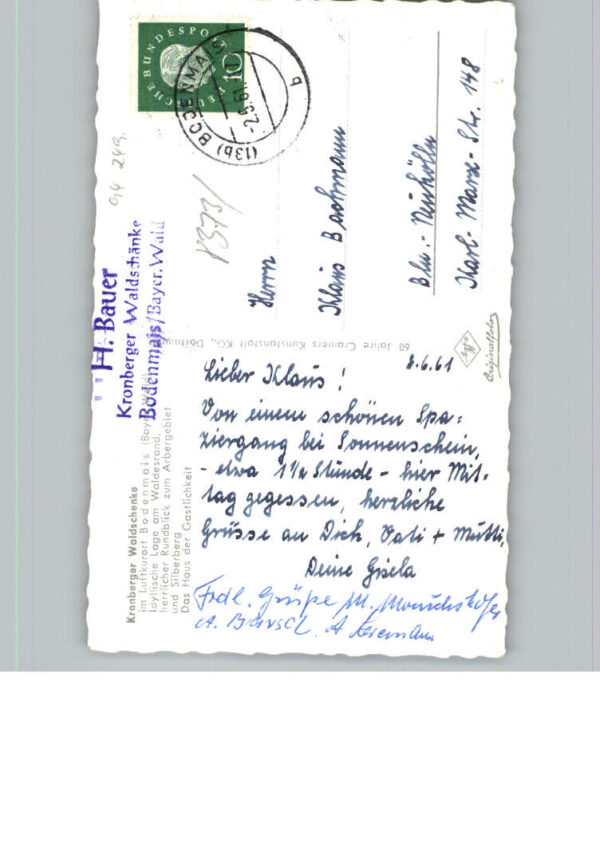 DEUTSCHE BUNDESPOST
10
(13b) BODENMAIS
-2.6.61
b
94 249.
H. Bauer
Kronberger Waldschänke
Bodenmais/Bayer. Wald
Herrn
Klaus Bachmann
Bln.-Neukölln
Karl-Marx-Str. 148
60 Jahre Cramers Kunstanstalt KG., Dortmund
Agfa
Originalfoto
Kronberger Waldschenke
im Luftkurort Bodenmais (Bayer.
Idyllische Lage am Waldesrand,
herrlicher Rundblick zum Arbergebiet
und Silberberg
Das Haus der Gastlichkeit
2.6.61
Lieber Klaus!
Von einem schönen Spa=
ziergang bei Sonnenschein,
- etwa 1½ Stunde - hier Mit-
tag gegessen, herzliche
Grüsse an Dich, Vati + Mutti,
Deine Gisela
Frdl. Grüße M.
A.